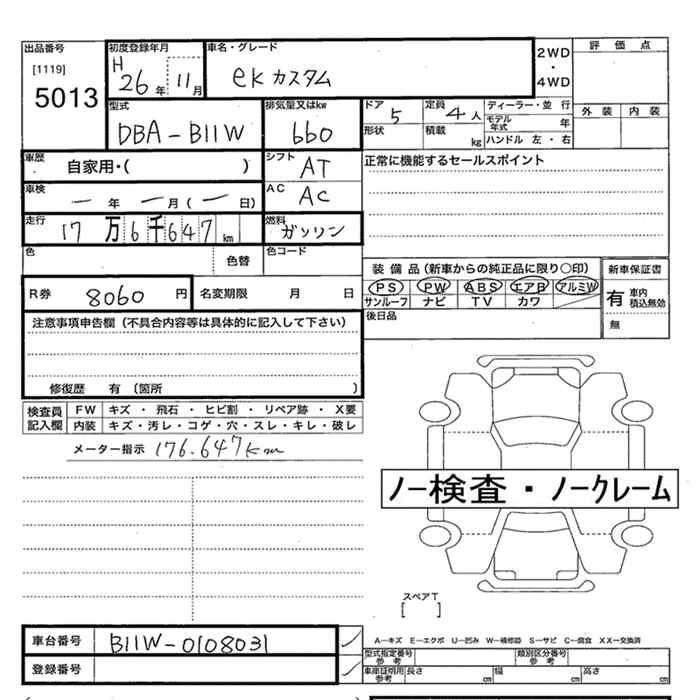 出品番号 初度登録年月 車名・グレード 2WD・4WD 評価点
[1119] H 26年 11月 eKカスタム
5013
型式 排気量又はkw ドア 5 定員 4人 ディーラー・並行 外装 内装
DBA-B11W 660 形状 積載 kg モデル年式 年
ハンドル 左・右
車歴 自家用・( ) シフト AT 正常に機能するセールスポイント
車検 一年 一月(一日) AC AC
走行 17万6千647km 燃料 ガソリン
色 色替 色コード
装備品(新車からの純正品に限り○印) 新車保証書
R券 8060円 名変期限 月 日 PS PW ABS エアB アルミW 有 車内 積込無効
サンルーフ ナビ TV カワ
注意事項申告欄(不具合内容等は具体的に記入して下さい) 後日品 無
修復歴 有〔箇所 〕
検査員記入欄 FW キズ・飛石・ヒビ割・リペア跡・X要
内装 キズ・汚レ・コゲ・穴・スレ・キレ・破レ
メーター指示 176.647km
ノー検査・ノークレーム
スペアT
[ ]
車台番号 B11W-0108031 A―キズ E―エクボ U―凹み W―補修跡 S―サビ C―腐食 XX―交換済
型式指定番号 参考 類別区分番号 参考
登録番号 車庫証明用 参考 長さ cm 幅 cm 高さ cm